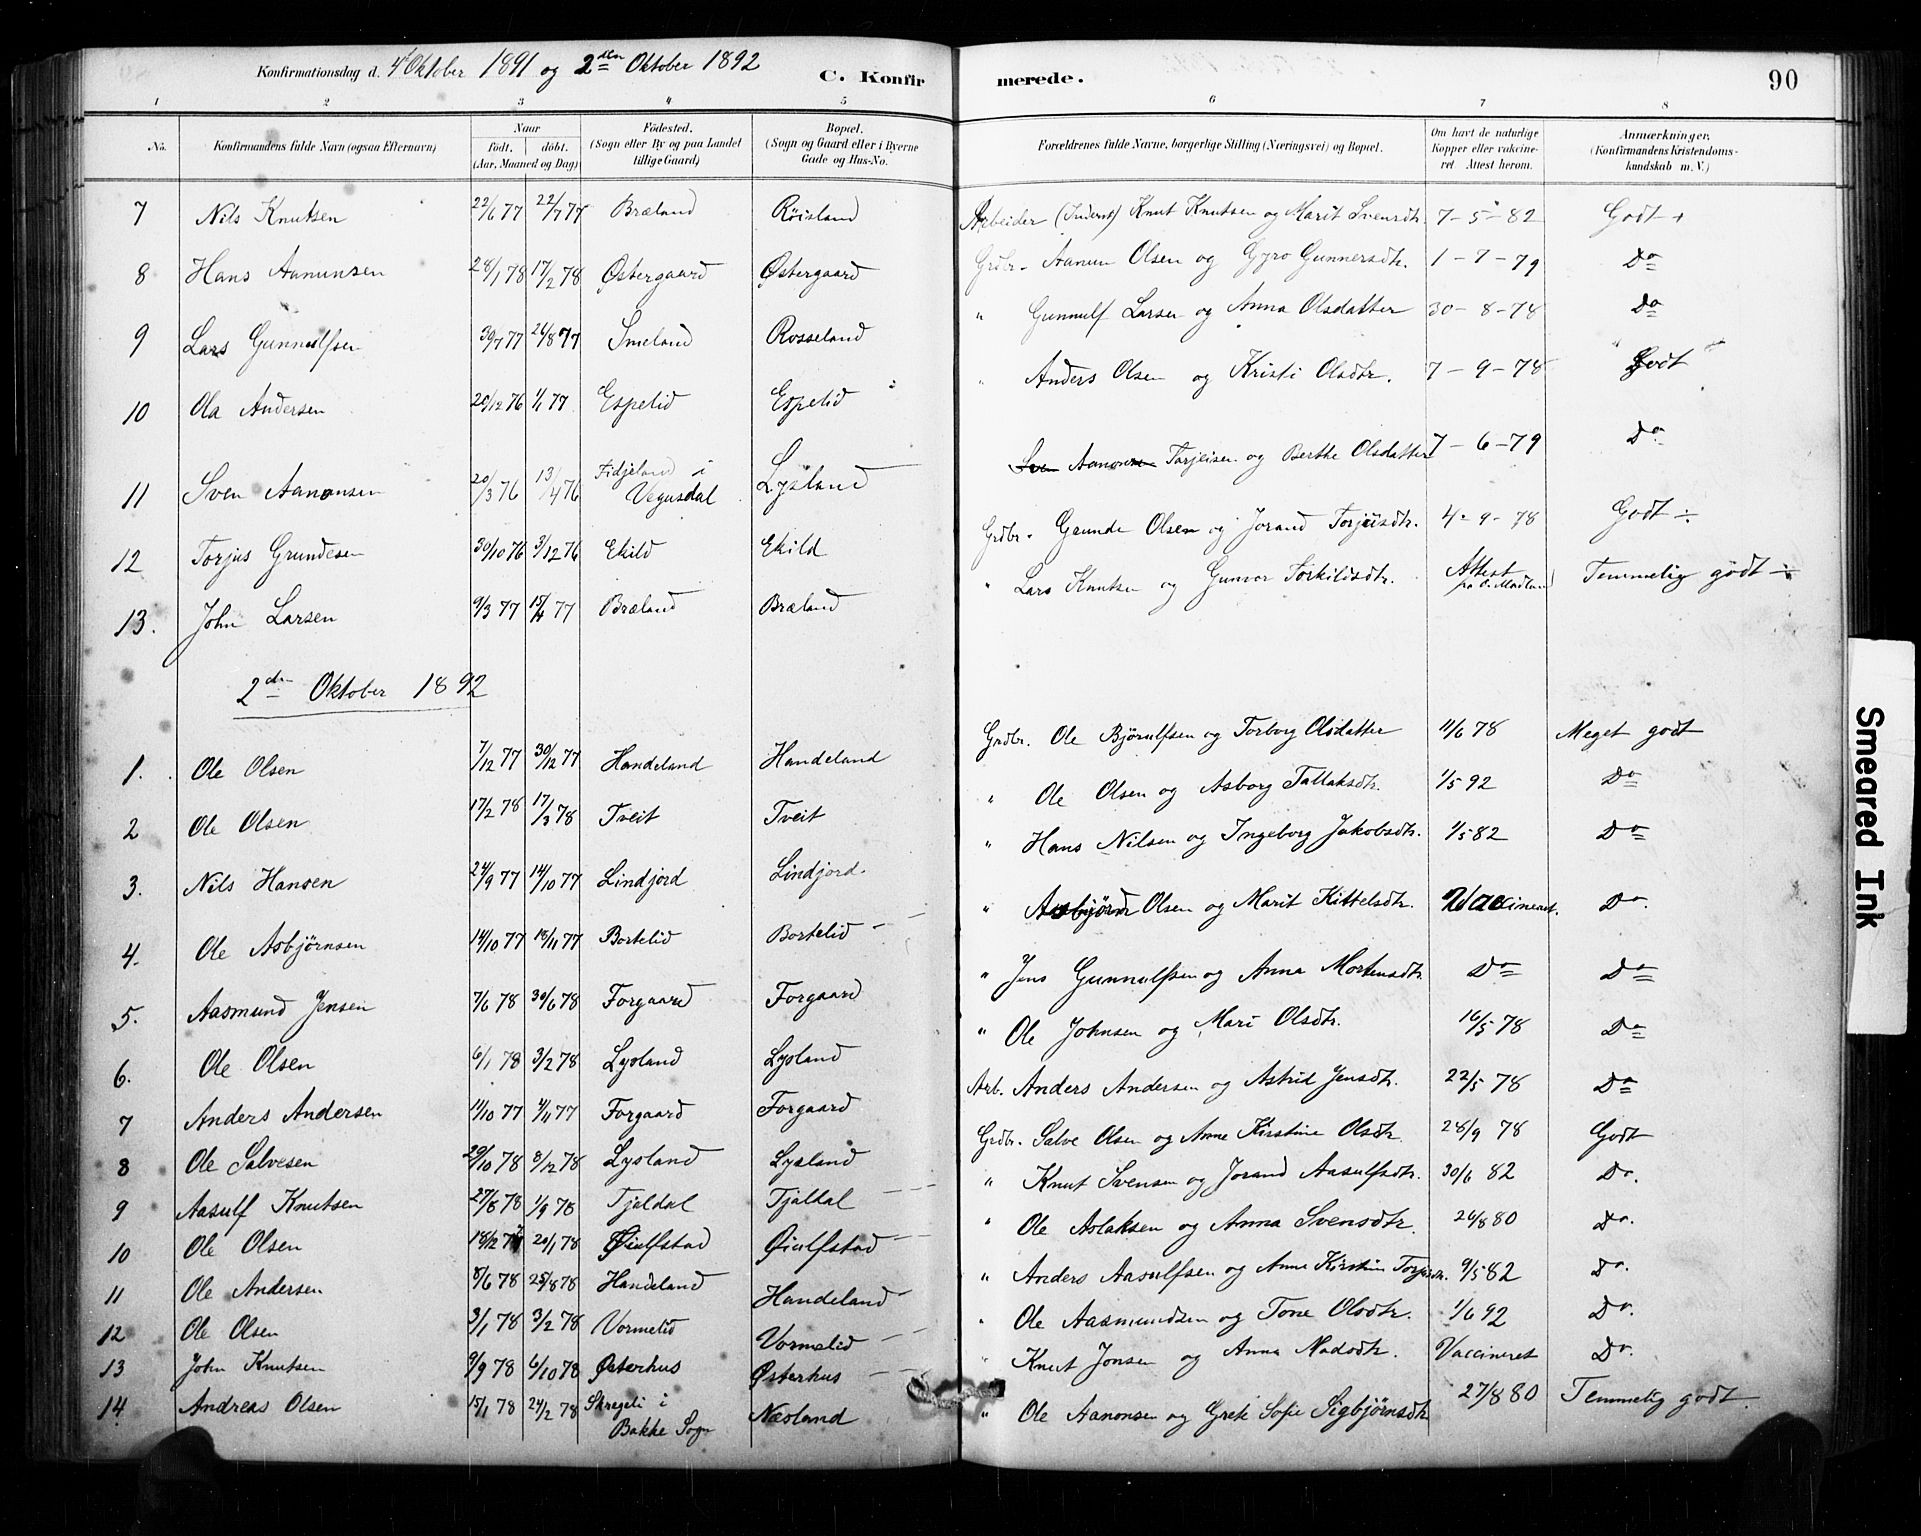 Konfirmationsdag d. 4' Oktober 1891 og 2den Oktober 1892 C. Konfirmerede. 90
1 2 3 4 5 6 7 8
No. Konfirmandens fulde Navn (ogsaa Efternavn) Naar født. døbt. (Aar, Maaned og Dag) Fødested. (Sogn eller By og paa Landet tillige Gaard) Bopæl. (Sogn og Gaard eller i Byerne Gade og Hus-No. Forældrenes fulde Navne, borgerlige Stilling (Næringsvei) og Bopæl. Om havt de naturlige Kopper eller vakcineret Attest herom. Anmærkninger. (Konfirmandens Kristendomskundskab m. V.)
7 Nils Knutsen 22/6 77 22/7 77 Bræland Røisland Arbeider (Inderst) Knut Knutsen og Marit Svensdtr. 7-5-82 Godt +
8 Hans Aanunsen 28/1 78 17/2 78 Østergaard Østergaard Grdbr. Aanun Olsen og Gyro Gunnersdtr. 1-7-79 Do
9 Lars Gunnulfsen 30/7 77 26/8 77 Smeland Rosseland " Gunnulf Larsen og Anna Olsdatter 30-8-78 Do
10 Ola Andersen 20/12 76 1/1 77 Espelid Espelid " Anders Olsen og Kristi Olsdtr. 7-9-78 Godt
11 Sven Aanonsen 20/3 76 13/4 76 Fidjeland i Vegusdal Lysland Sven Aanonsen Tarjeisen og Berthe Olsdatter 7-6-79 Do
12 Torjus Grundesen 30/10 76 3/12 76 Ekild Ekild Grdbr. Grunde Olsen og Jorand Torjusdtr. 4-9-78 Godt ÷
13. John Larsen 9/3 77 15/4 77 Bræland Bræland " Lars Knutsen og Gunvor Torkildsdtr. Attest fra O. Madland Temmelig godt ÷
2den Oktober 1892
1. Ole Olsen 7/12 77 30/12 77 Handeland Handeland Grdbr. Ole Bjørulfsen og Torborg Olsdatter 11/6 78 Meget godt
2 Ole Olsen 17/2 78 17/3 78 Tveit Tveit " Ole Olsen og Asborg Tallaksdtr. 1/5 92 Do
3. Nils Hansen 24/9 77 14/10 77 Lindjord Lindjord. " Hans Nilsen og Ingeborg Jakobsdtr. 1/5 82 Do
4. Ole Asbjørnsen 14/10 77 18/11 77 Bortelid Bortelid " Asbjørn Olsen og Marit Kittelsdtr. Vaccineret. Do.
5. Aasmund Jensen 7/6 78 30/6 78 Forgaard Forgaard " Jens Gunnulfsen og Anna Mortensdtr. Do Do
6. Ole Olsen 6/1 78 3/2 78 Lysland Lysland " Ole Johnsen og Mari Olsdtr. 16/5 78 Do
7 Anders Andersen 11/10 77 4/11 77 Forgaard Forgaard Arb. Anders Andersen og Astrid Jensdtr. 22/5 78 Do
8 Ole Salvesen 29/10 78 8/12 78 Lysland Lysland Grdbr. Salve Olsen og Anne Kirstine Olsdtr. 28/9 78 Godt
9 Aasulf Knutsen 27/8 78 1/9 78 Tjaldal Tjaldal " Knut Svensen og Jorand Aasulfsdtr. 30/6 82 Do.
10 Ole Olsen 18/12 77 20/1 78 Øiulfstad Øiulfstad " Ole Aslaksen og Anna Svensdtr. 26/8 80 Do.
11 Ole Andersen 8/6 78 25/8 78 Handeland Handeland " Anders Aasulfsen og Anne Kirstine Torjusdtr. 9/5 82 Do.
12 Ole Olsen 3/1 78 3/2 78 Vormelid Vormelid " Ole Aasmundsen og Tone Olsdtr. 1/6 92 Do.
13 John Knutsen 9/9 78 6/10 78 Østerhus Østerhus " Knut Jonsen og Anna Nadsdtr. Vaccineret Do.
14 Andreas Olsen 15/1 78 24/2 78 Skrageli i Bakke Sogn Næsland " Ole Aanonsen og Grete Sofie Sigbjørnsdtr 27/8 80 Temmelig godt.
Smeared Ink